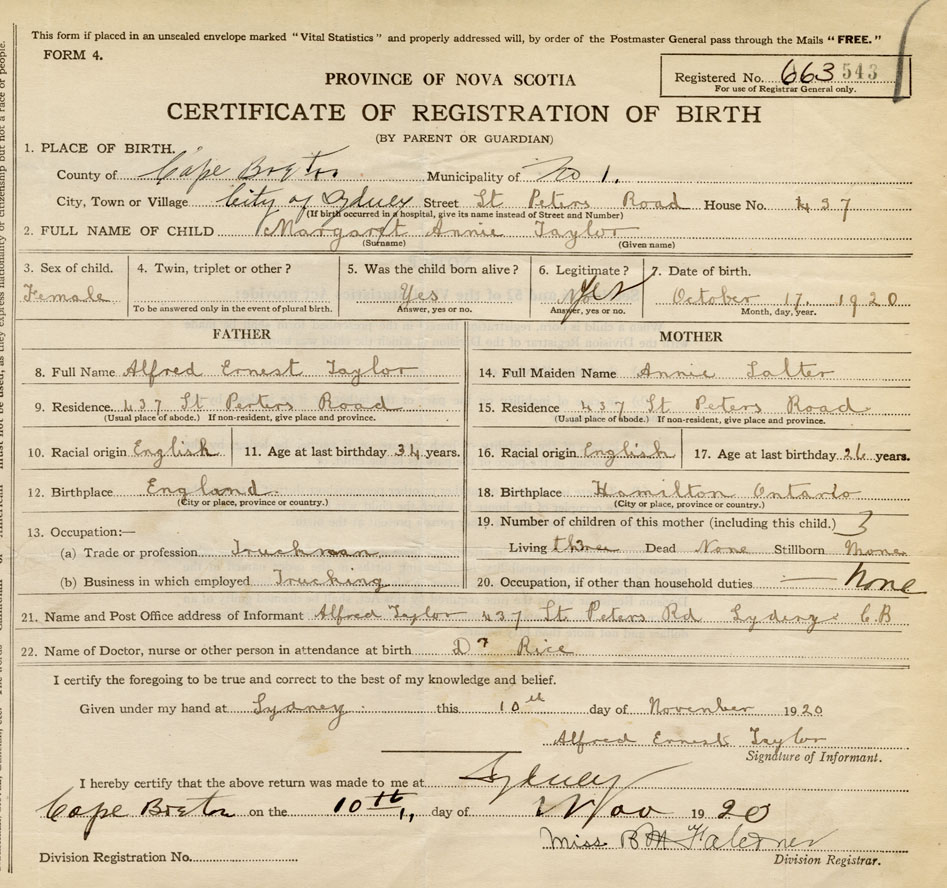 This form if placed in an unsealed envelope marked "Vital Statistics" and properly addressed will, by order of the Postmaster General pass through the Mails "FREE."
FORM 4.
PROVINCE OF NOVA SCOTIA
Registered No. 663 543
For use of Registrar General only.
CERTIFICATE OF REGISTRATION OF BIRTH
(BY PARENT OR GUARDIAN)
1. PLACE OF BIRTH.
County of Cape Breton Municipality of No 1.
City, Town or Village City of Sydney Street St Peters Road House No. 437
(If birth occurred in a hospital, give its name instead of Street and Number)
2. FULL NAME OF CHILD Margaret Annie Taylor
(Surname) (Given name)
3. Sex of child. 4. Twin, triplet or other? 5. Was the child born alive? 6. Legitimate? 7. Date of birth.
Female Yes Yes October 17. 1920
To be answered only in the event of plural birth. Answer, yes or no. Answer, yes or no. Month, day, year.
FATHER MOTHER
8. Full Name Alfred Ernest Taylor 14. Full Maiden Name Annie Salter
9. Residence. 437 St Peters Road 15. Residence 437 St Peters Road
(Usual place of abode.) If non-resident, give place and province. (Usual place of abode.) If non-resident, give place and province.
10. Racial origin English 11. Age at last birthday 34 years. 16. Racial origin English 17. Age at last birthday 26 years.
12. Birthplace England. 18. Birthplace Hamilton Ontario
(City or place, province or country.) (City or place, province or country.)
13. Occupation:— 19. Number of children of this mother (including this child.) 3
(a) Trade or profession Truckman Living three Dead None Stillborn None
(b) Business in which employed Trucking 20. Occupation, if other than household duties. None
21. Name and Post Office address of Informant Alfred Taylor 437 St Peters Rd Sydney C.B
22. Name of Doctor, nurse or other person in attendance at birth Dr Rice
I certify the foregoing to be true and correct to the best of my knowledge and belief.
Given under my hand at Sydney this 10th day of November 1920
Alfred Ernest Taylor
Signature of Informant.
I hereby certify that the above return was made to me at Sydney
Cape Breton on the 10th day of Nov 1920
Miss B M Falconer
Division Registrar.
Division Registration No.